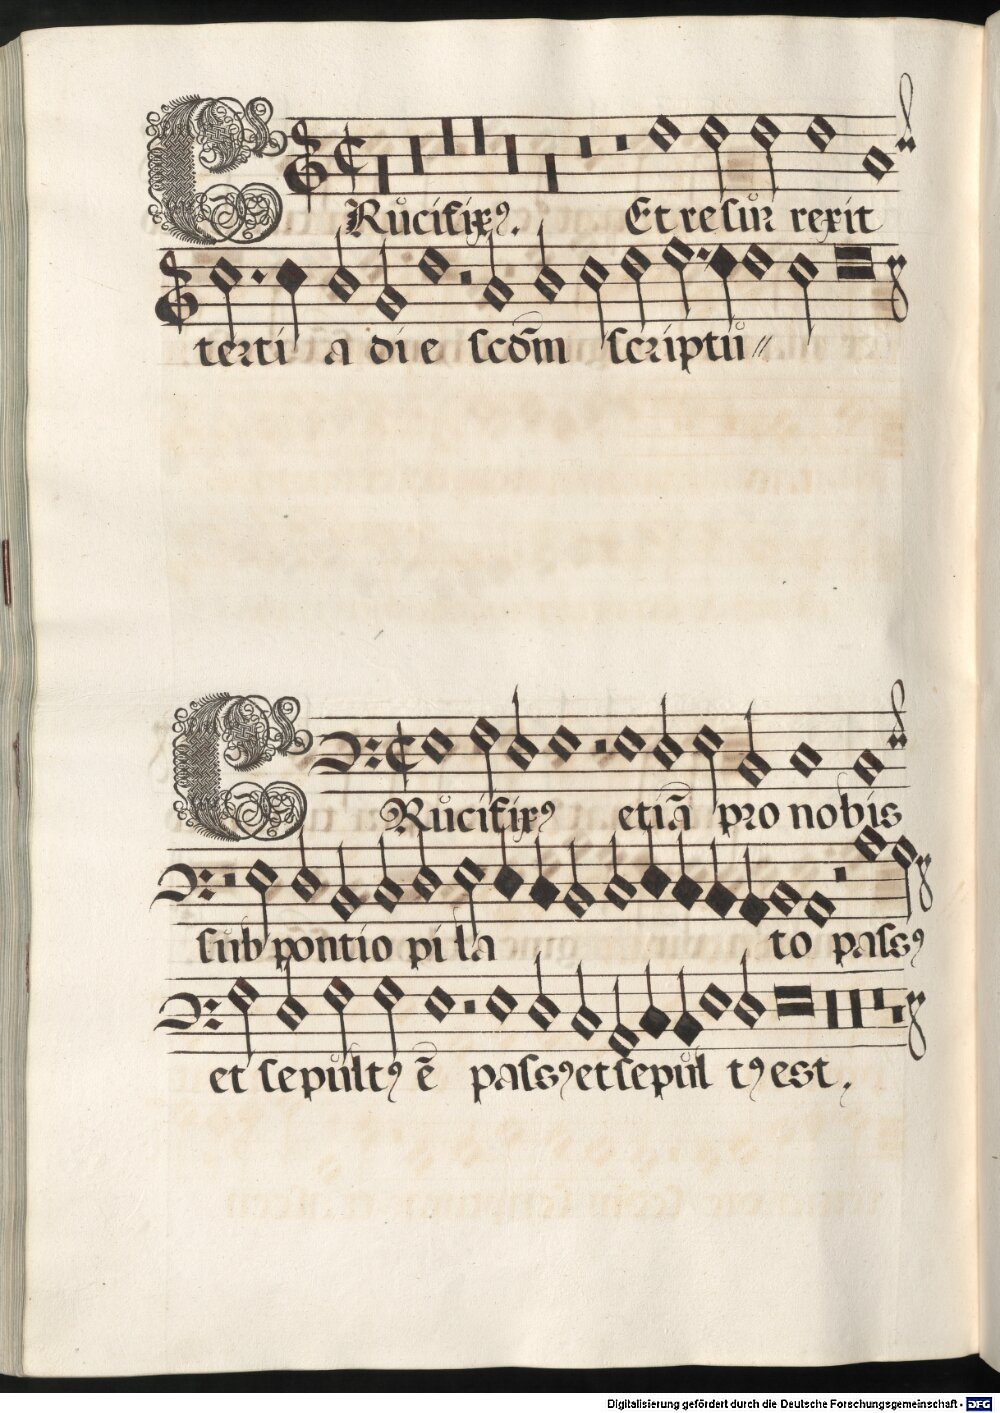 CRucifixꝰ. Et resur rexit
terti a die scdm̄ scriptu〃
CRucifixꝰ etiā pro nobis
sub pontio pi la to passꝰ
et sepultꝰ ē passꝰ et sepul tꝰ est.
Digitalisierung gefördert durch die Deutsche Forschungsgemeinschaft - DFG